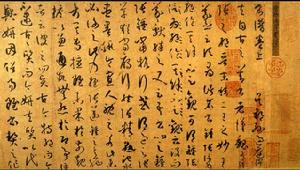 書譜卷上 吳郡孫過庭撰
夫自古之善書者漢魏有鍾
張之絕晉末稱二王之妙王
羲之云頃尋諸名書鍾張信
為絕倫其餘不足觀可謂鍾張
云沒而羲獻繼之又云吾書
比之鍾張鍾當抗行或謂過之
張草猶當雁行然張精熟池水
盡墨假令寡人耽之若此未必
謝之此乃推張邁鍾之意也
考其專擅雖未果於前規摭
以兼通故無慚於即事評者
云彼之四賢古今特絕而今
不逮古古質而今妍夫質以代
興妍因俗易雖書契